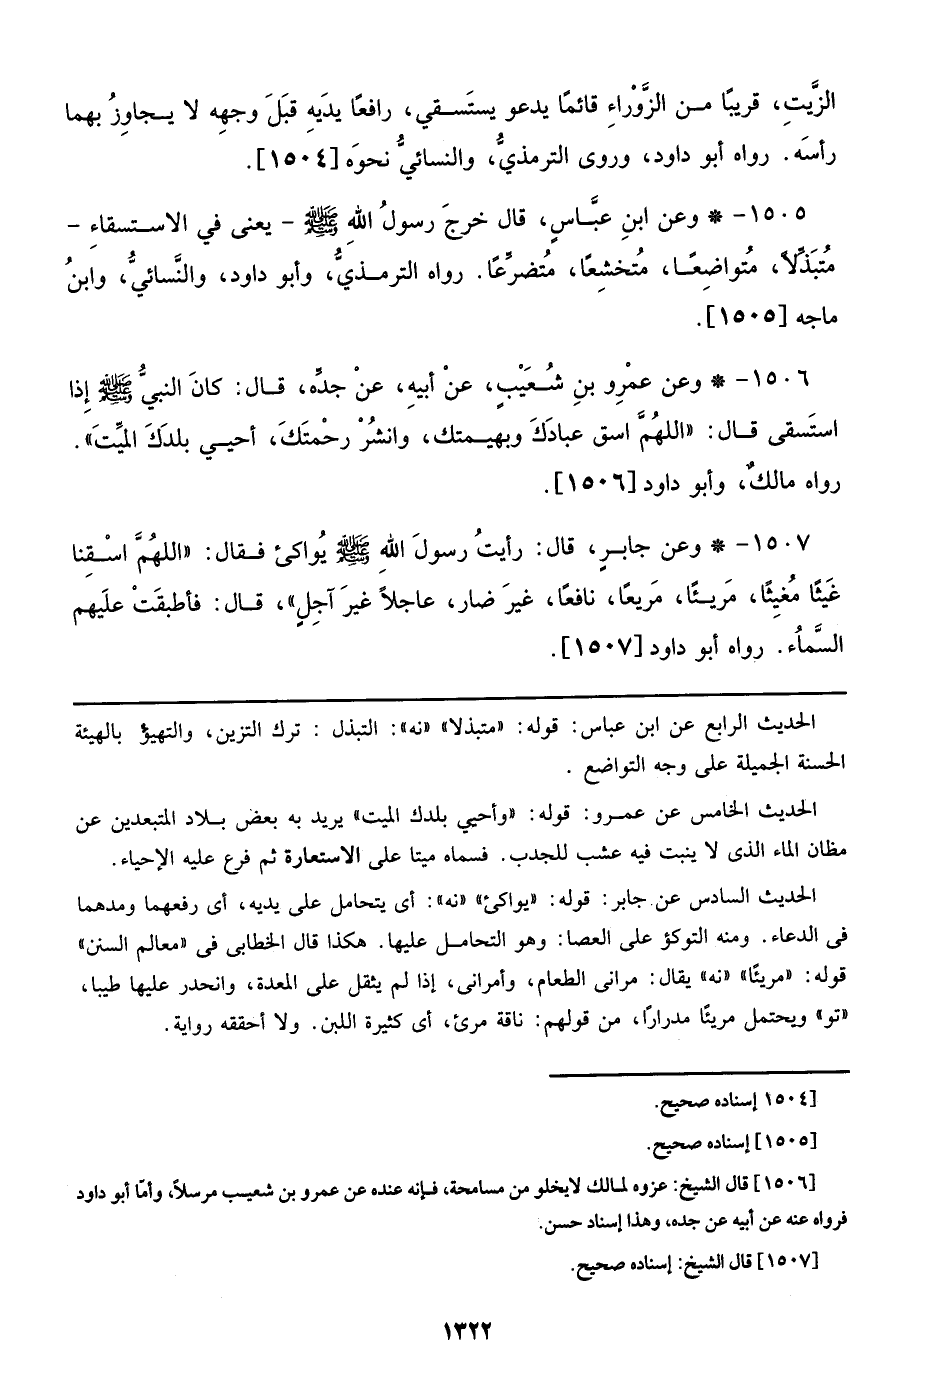 الزَّيتِ، قريبًا مـن الزَّوْراءِ قائمًا يدعو يستَسـقي، رافعًا يدَيهِ قبَلَ وجهِه لا يـجاوِزُ بهما
رأسَه. رواه أبو داود، وروى الترمذيُّ، والنسائيُّ نحوَه [١٥٠٤].
١٥٠٥- * وعن ابنِ عبَّـاسٍ، قال خرجَ رسولُ اللهِ ﷺ – يعنى في الاسـتسقاءِ –
مُتبَذِّلاً، مُتواضِعًـا، مُتخشِعًا، مُتضرِّعًا. رواه الترمـذيُّ، وأبو داود، والنَّسائيُّ، وابنُ
ماجه [١٥٠٥].
١٥٠٦- * وعن عمْرِو بنِ شُـعَيْبٍ، عنْ أبيهِ، عنْ جدِّه، قـال: كانَ النبيُّ ﷺ إِذا
استَسقى قـال: «اللهُمَّ اسق عبادَكَ وبهيـمتك، وانشُرْ رحْمتَكَ، أحيـي بلدَكَ الميِّتَ».
رواه مالكٌ، وأبو داود [١٥٠٦].
١٥٠٧- * وعن جابـرٍ، قال: رأيتُ رسولَ اللهِ ﷺ يُواكئ فـقال: «اللهُمَّ اسْـقِنا
غَيثًا مُغيثًا، مَريـئًا، مَريعًا، نافعًا، غيرَ ضار، عاجلاً غيرَ آجِلٍ»، قـال: فأطبقَتْ علَيهم
السَّماُء. رواه أبو داود [١٥٠٧].
الحديث الرابع عن ابن عباس: قوله: «متبذلا» «نه»: التبذل : ترك التزين، والتهيؤ بالهيئة
الحسنة الجميلة على وجه التواضع .
الحديث الخامس عن عمـرو: قوله: «وأحيي بلدك الميت» يريد به بعض بـلاد المتبعدين عن
مظان الماء الذى لا ينبت فيه عشب للجدب. فسماه ميتا على الاستعارة ثم فرع عليه الإحياء.
الحديث السادس عن جابر: قوله: «يواكئ» «نه»: أى يتحامل على يديه، أى رفعهما ومدهما
فى الدعاء. ومنه التوكؤ على العصا: وهو التحامـل عليها. هكذا قال الخطابى فى «معالم السنن»
قوله: «مريئًا» «نه» يقال: مرانى الطعام، وأمرانى، إذا لم يثقل على المعدة، وانحدر عليها طيبا،
«تو» ويحتمل مريئًا مدرارًا، من قولهم: ناقة مرئ، أى كثيرة اللبن. ولا أحققه رواية.
[١٥٠٤ إسناده صحيح.
[١٥٠٥] إسناده صحيح.
[١٥٠٦] قال الشيخ: عزوه لمالك لايخلو من مسامحة، فـإنه عنده عن عمرو بن شعيـب مرسلاً، وأمّا أبو داود
فرواه عنه عن أبيه عن جده، وهذا إسناد حسن.
[١٥٠٧] قال الشيخ: إسناده صحيح.
١٣٢٢